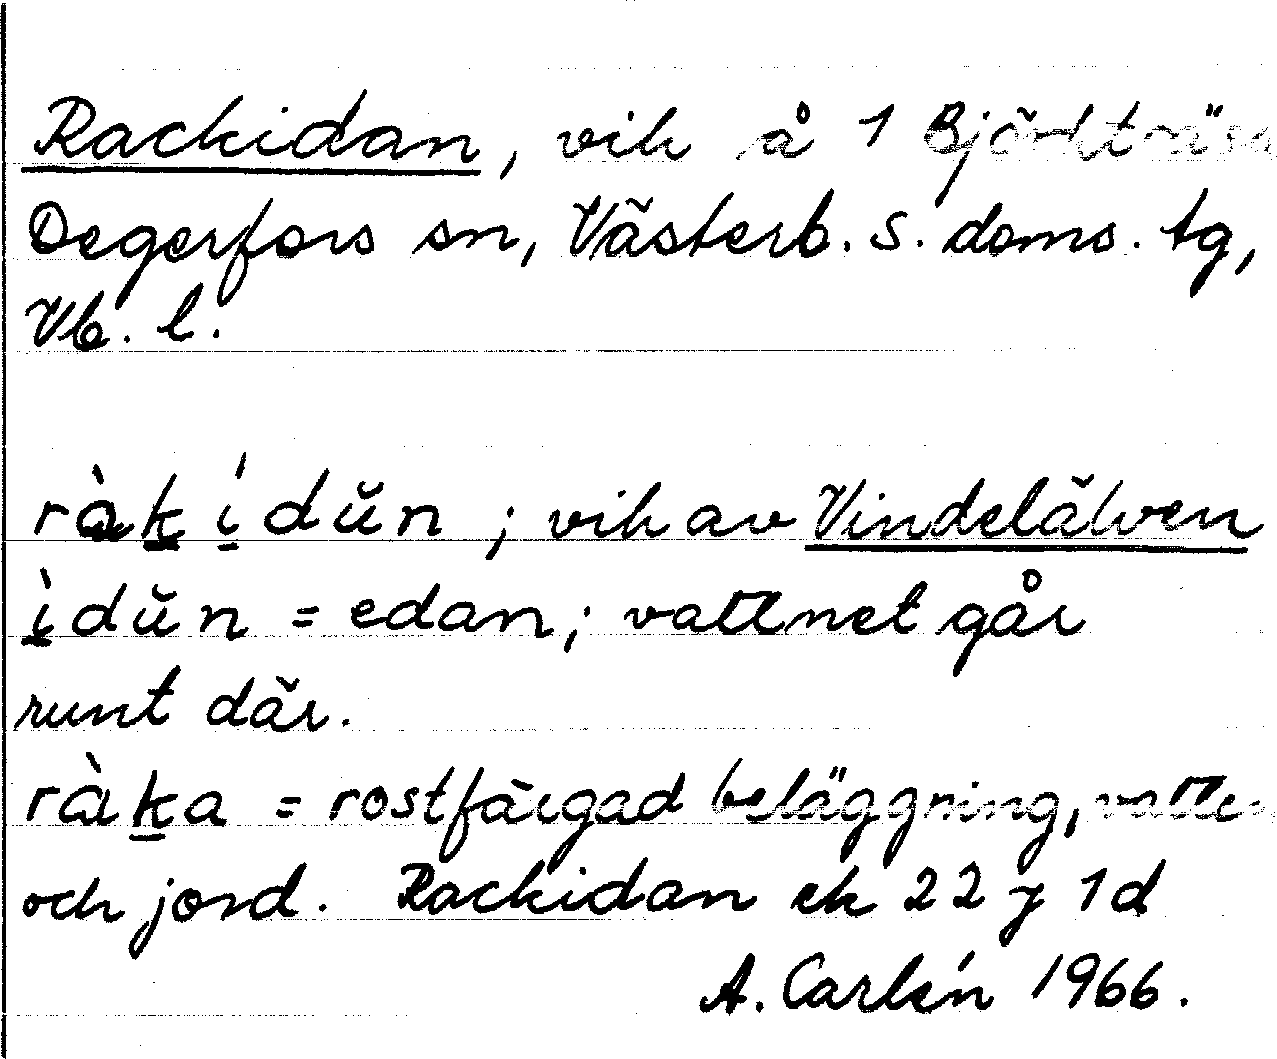 Rackidan, vik å 1 Björkträsk
Degerfors sn, Västerb. s. doms. tg,
Vb. l.
ràk ídŭn; vik av Vindelälven
ìdŭn = edan; vattnet går
runt där.
ràka = rostfärgad beläggning, vatten
och jord. Rackidan ek 22 j 1d
A. Carlén 1966.